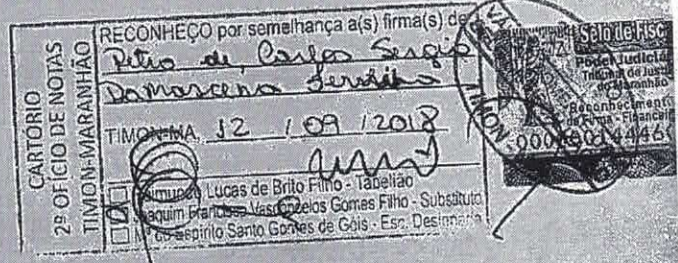 CARTÓRIO
2º OFÍCIO DE NOTAS
TIMON-MARANHÃO
RECONHEÇO por semelhança a(s) firma(s) de
de Carlos Sergio
Damarcena
TIMON-MA, 12 / 09 / 2018
Lucas de Brito Filho - Tabelião
aquim Francisco Vasconcelos Gomes Filho - Substituto
do Espirito Santo Gomes de Góis - Esc.
Selo de Fisc
Poder Judiciá
Tribunal de Just
do Maranhão
Reconheciment
de Firma - Financeir
TIMON